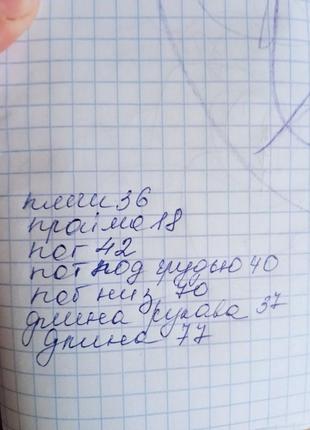 плечи 36
пройма 18
пог 42
пот под грудью 40
поб низ 70
длина рукава 37
длина 77